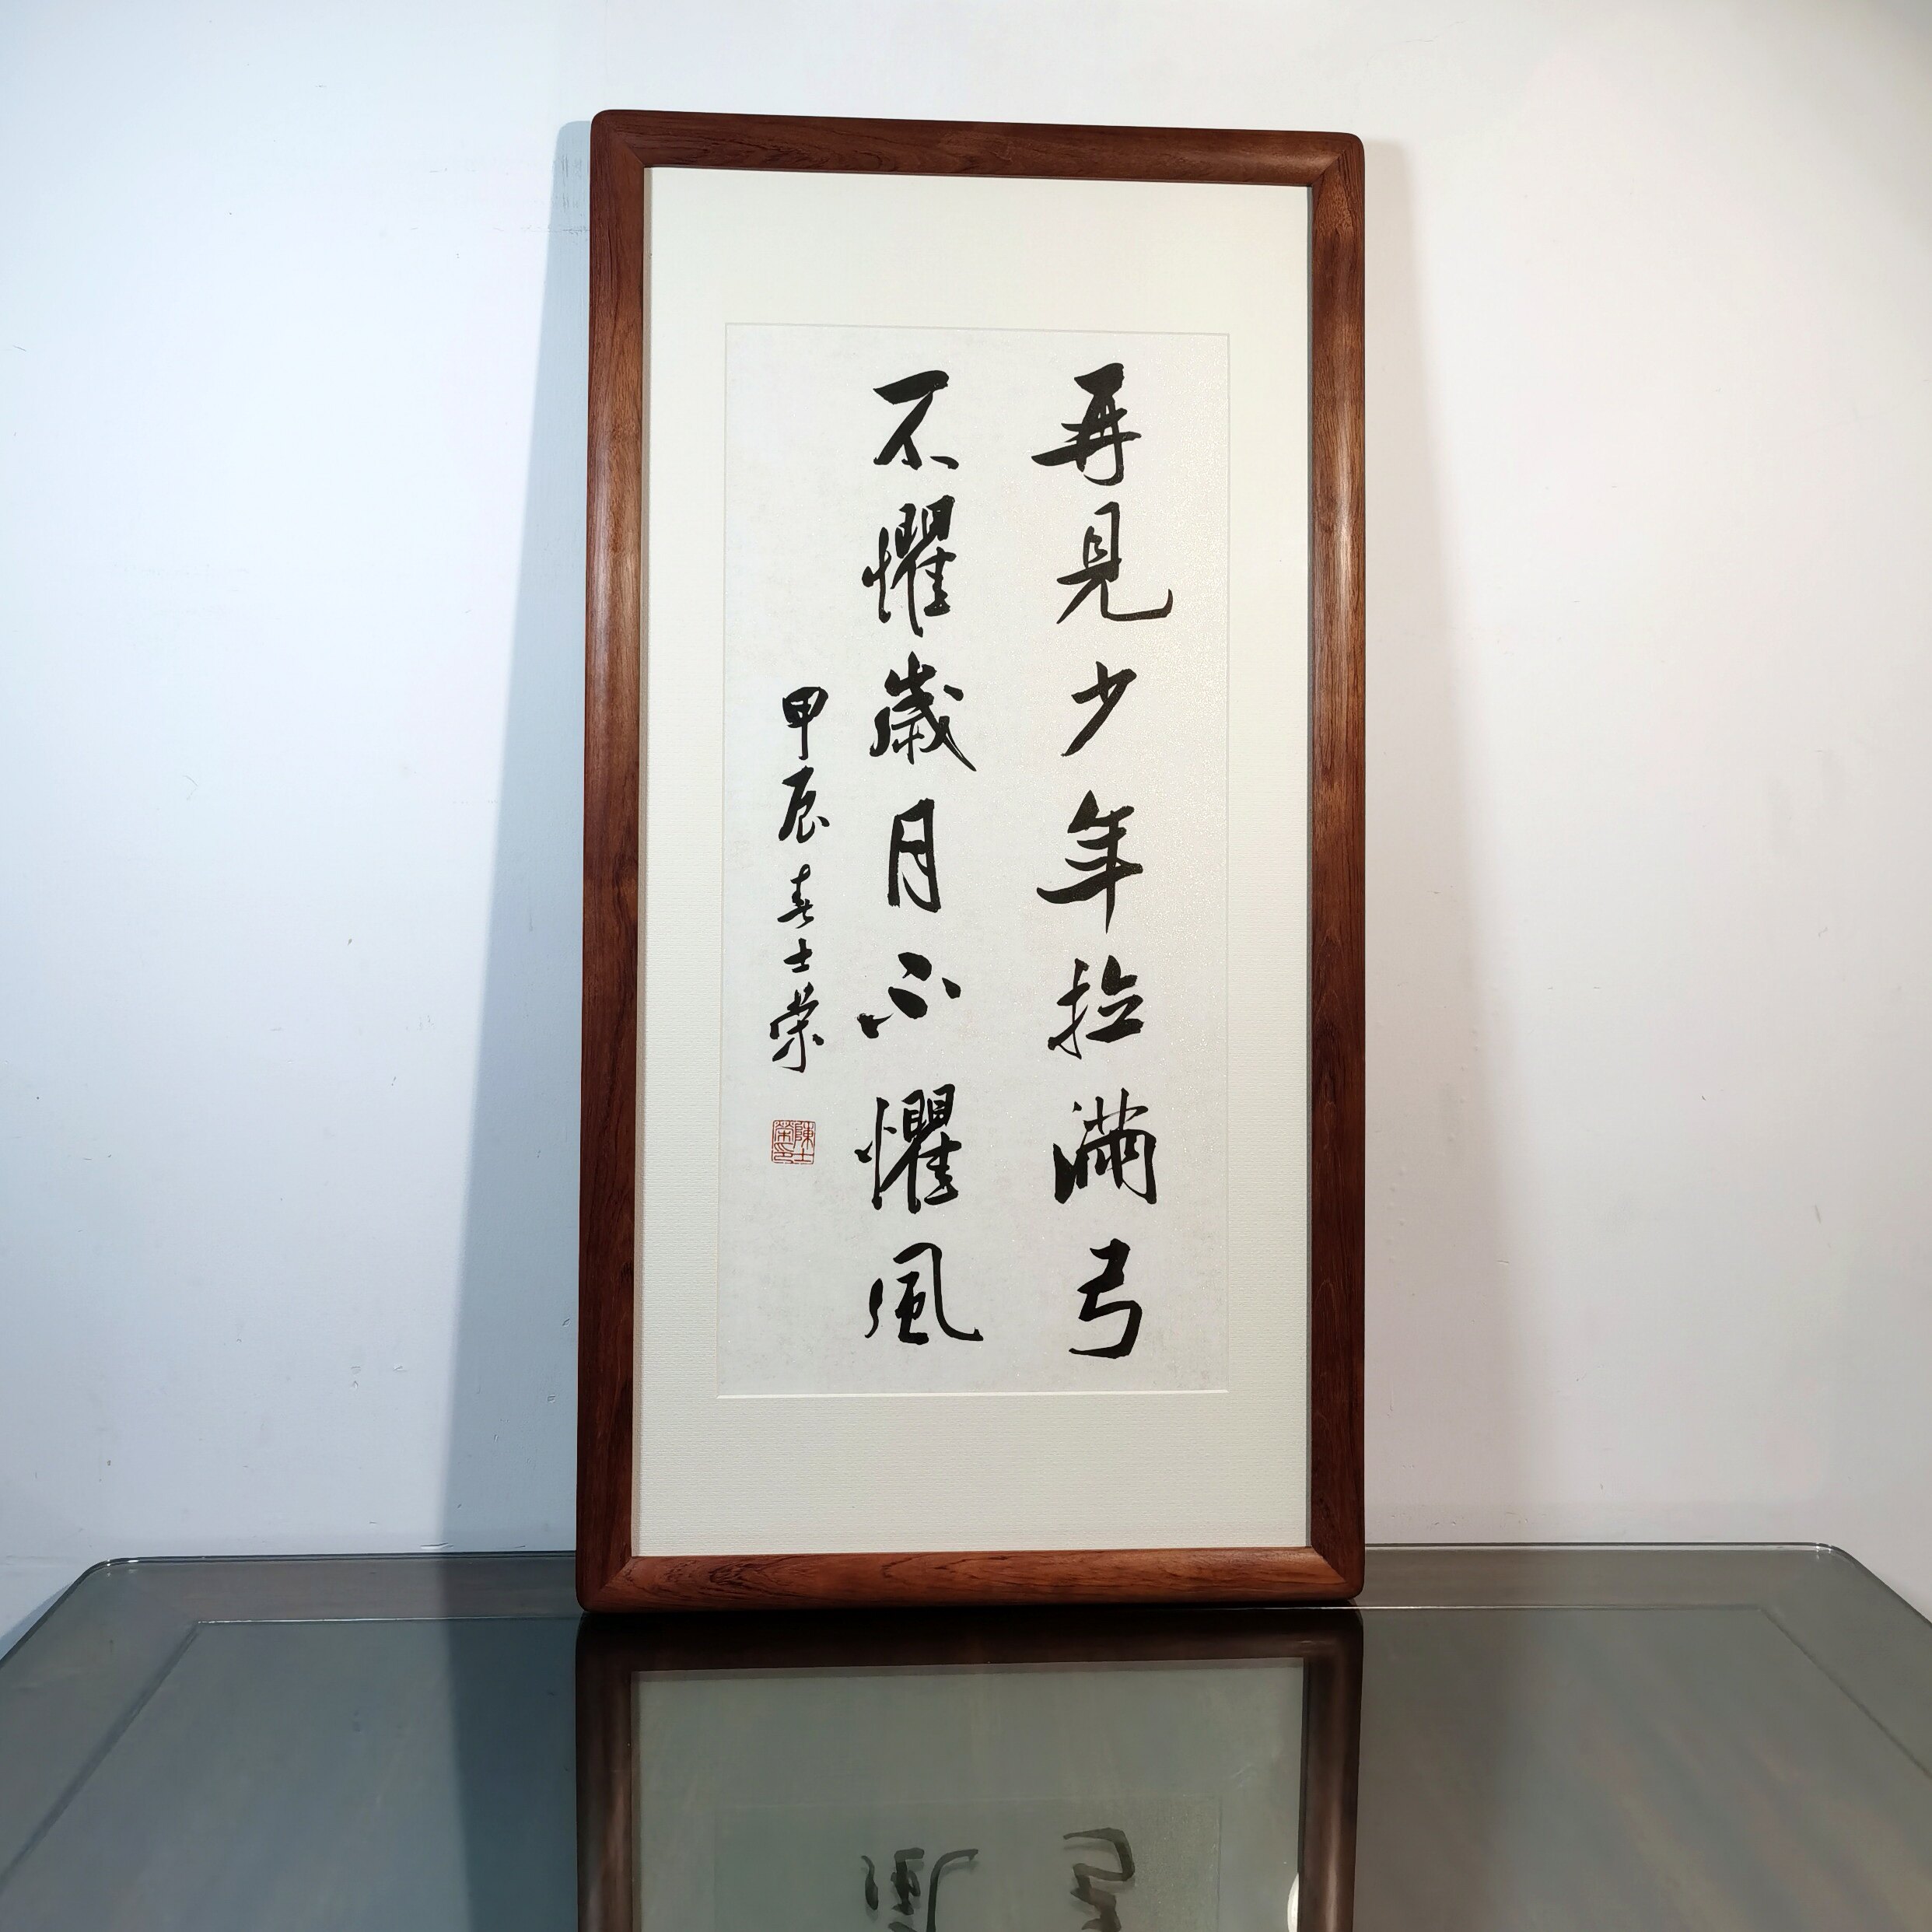 再見少年拉滿弓
不懼歲月不懼風
甲辰春士荣
陳士榮印